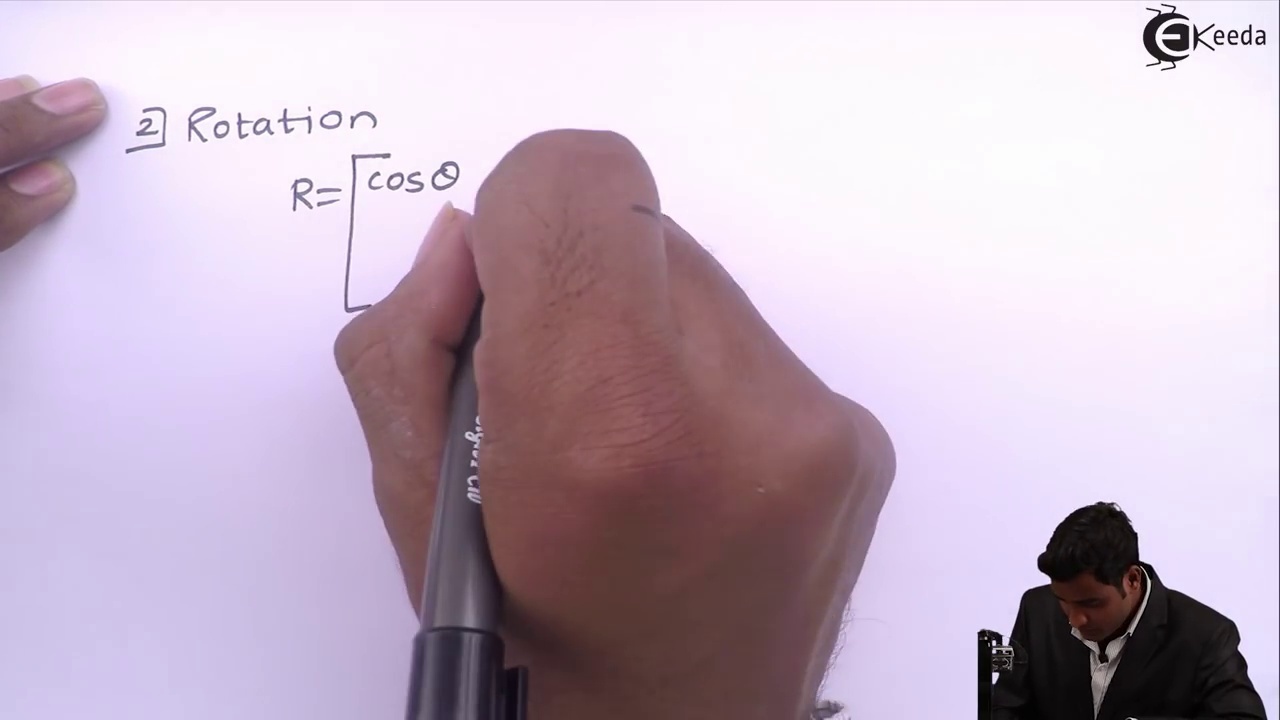 EKeeda
2] Rotation
R= [ cos θ